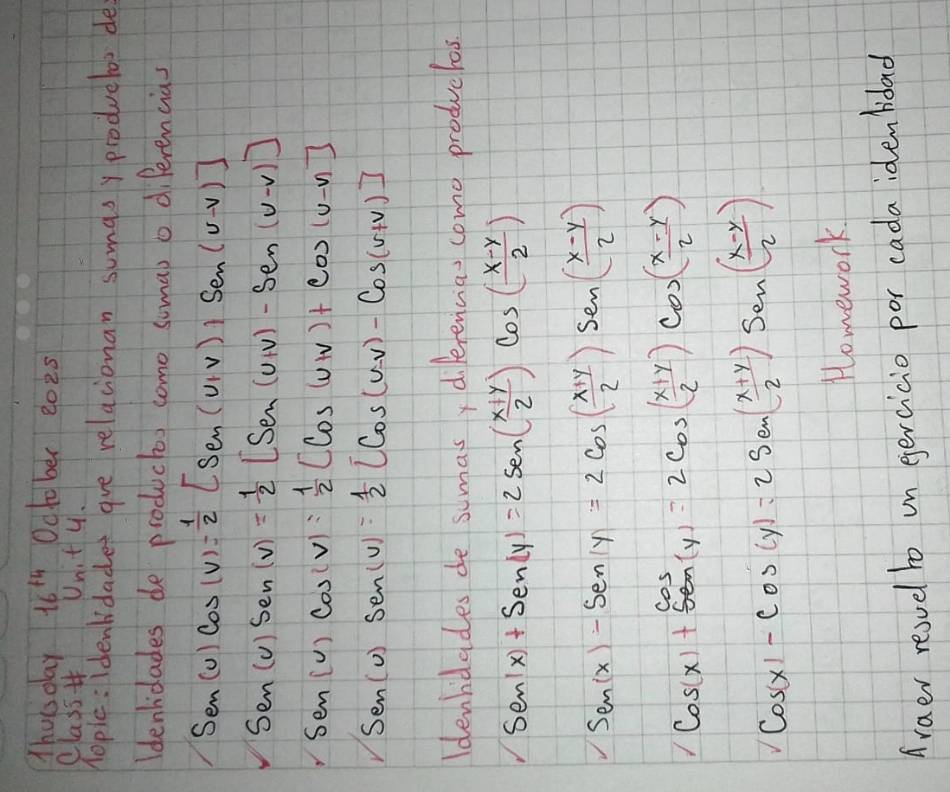 Thusday 16th October 2025
Class # Unit 4.
Topic: Identidades que relacionan sumas y productos de
Identidades de productos como sumas o diferencias
✓ Sen (u) Cos (v) = 1/2 [Sen (u+v) + Sen (u-v)]
✓ Sen (u) Sen (v) = 1/2 [Sen (u+v) - Sen (u-v)]
✓ Sen (u) Cos (v) = 1/2 [Cos (u+v) + Cos (u-v)]
✓ Sen (u) Sen (v) = 1/2 [Cos (u-v) - Cos (u+v)]
Identidades de sumas y diferencias como productos.
✓ Sen (x) + Sen (y) = 2 Sen ((x+y)/2) Cos ((x-y)/2)
✓ Sen (x) - Sen (y) = 2 Cos ((x+y)/2) Sen ((x-y)/2)
✓ Cos (x) + Cos (y) = 2 Cos ((x+y)/2) Cos ((x-y)/2)
✓ Cos (x) - Cos (y) = 2 Sen ((x+y)/2) Sen ((x-y)/2)
Homework.
Araer resuelto un ejercicio por cada identidad